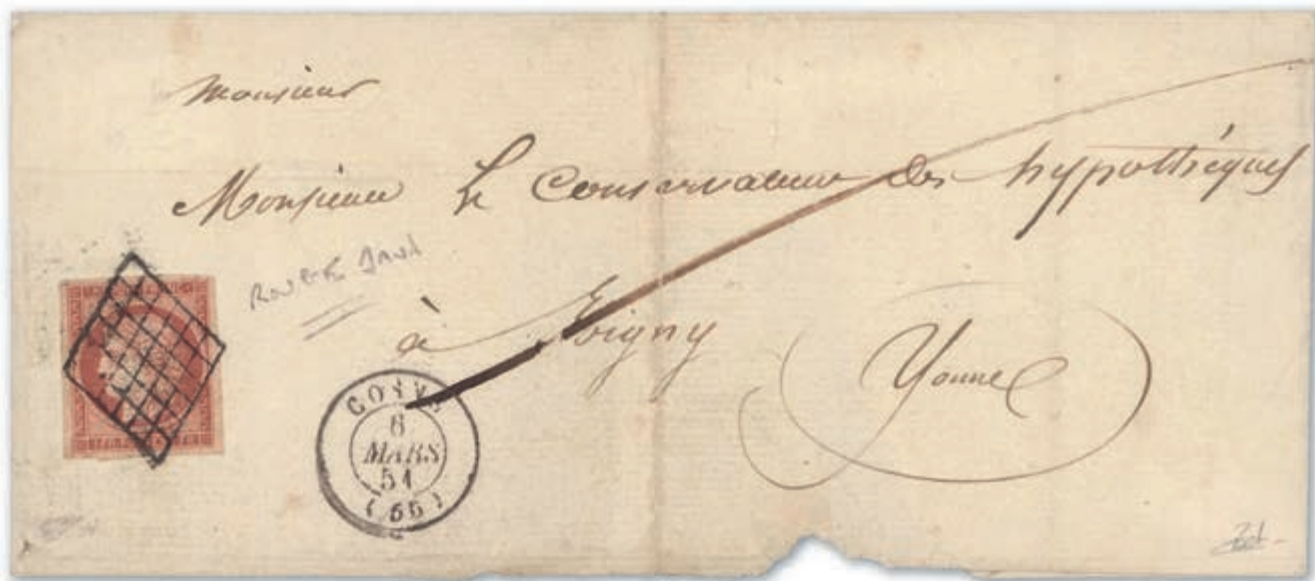 Monsieur
Monsieur Le Conservateur des hypothéques
à Joigny
Yonne
COSNE
6
MARS
51
(56)